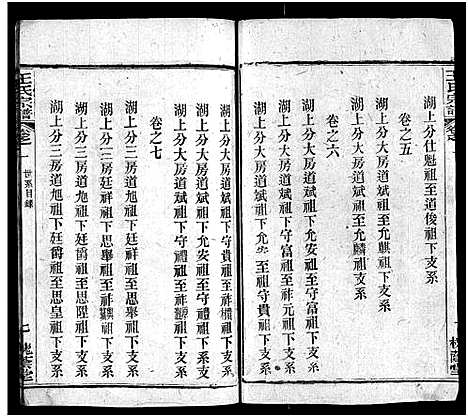 王氏宗譜
卷之五
湖上分仕魁祖至道俊祖下支系
湖上分大房道斌祖下允麒祖下支系
湖上分大房道斌祖至允麒祖下支系
卷之六
湖上分大房道斌祖下允安至守富祖下支系
湖上分大房道斌祖下守富祖至祚元祖下支系
湖上分大房道斌祖下允安至守貴祖下支系
湖上分大房道斌祖下允安至祚 祖下支系
湖上分大房道斌祖下守禮祖至祚 祖下支系
卷之七
湖上分三房道旭祖下廷爵祖至思舉祖下支系
湖上分三房廷祥祖下思舉祖至祚 祖下支系
湖上分三房道旭祖下廷爵祖至思陞祖下支系
湖上分三房道旭祖下廷爵祖至思皇祖下支系
王氏宗譜
卷之一
世系目錄
七
槐蔭堂